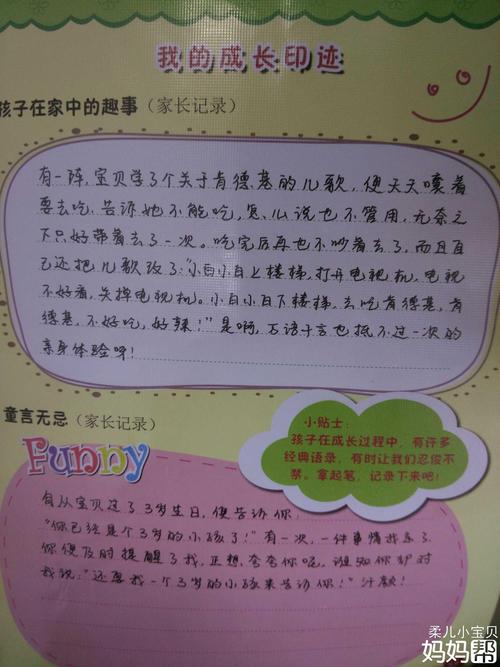 我的成长印迹
孩子在家中的趣事（家长记录）
有一阵,宝贝学了个关于肯德基的儿歌，便天天嚷着
要去吃.告诉她不能吃,怎么说也不管用,无奈之
下只好带着去了一次。吃完后再也不吵着去了,而且自
己还把儿歌改了:“小白小白上楼梯,打开电视机,电视
不好看,关掉电视机。小白小白下楼梯,去吃肯德基,肯
德基,不好吃,好辣!”是啊,万语千言也抵不过一次的
亲身体验呀!
童言无忌（家长记录）
Funny
小贴士：
孩子在成长过程中，有许多
经典语录，有时让我们忍俊不
禁。拿起笔，记录下来吧！
自从宝贝过了3岁生日,便告诉你:
“你已经是个3岁的小孩了!”有一次,一件事情我忘了.
你便及时提醒了我,正想夸夸你呢,谁知你却对
我说:“还要我一个3岁的小孩来告诉你!”汗颜!
柔儿小宝贝
妈妈帮